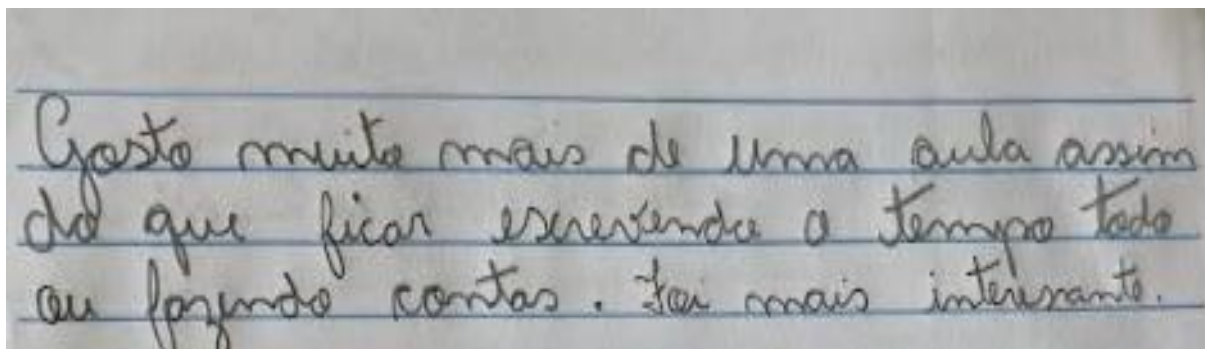 Gosto muito mais de uma aula assim
do que ficar escrevendo o tempo todo
ou fazendo contas. Foi mais interesante.